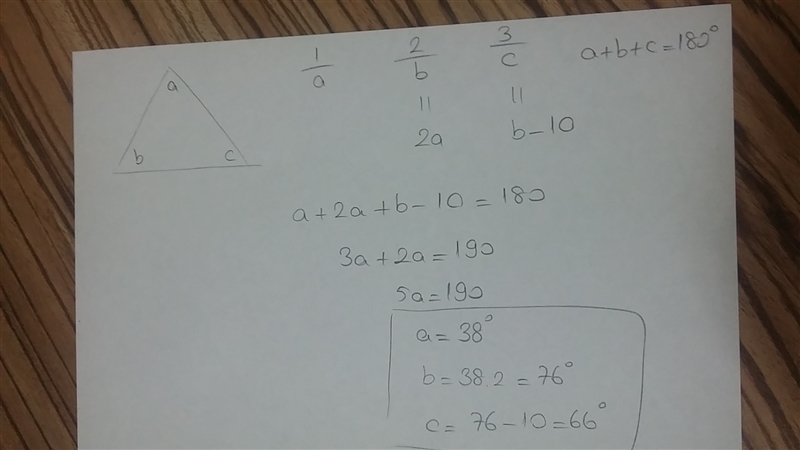 1/a 2/b 3/c a+b+c=180°
|| ||
2a b-10
a
b c
a+2a+b-10=180
3a+2a=190
5a=190
a=38°
b=38.2=76°
c=76-10=66°